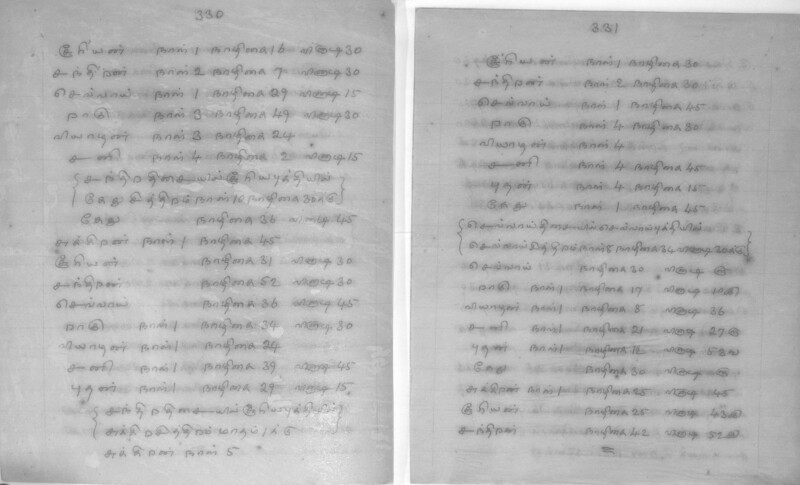 330
சூரியன் நாள் 1 நாழிகை 16 வினாடி 30
சந்திரன் நாள் 2 நாழிகை 7 வினாடி 30
செவ்வாய் நாள் 1 நாழிகை 29 வினாடி 15
ராகு நாள் 3 நாழிகை 49 வினாடி 30
வியாழன் நாள் 3 நாழிகை 24
சனி நாள் 4 நாழிகை 2 வினாடி 15
சந்திரதிசையில் சூரியபுத்தியில்
கேது நாள் 10 நாழிகை 30
கேது நாழிகை 36 வினாடி 45
சுக்கிரன் நாள் 1 நாழிகை 45
சூரியன் நாழிகை 31 வினாடி 30
சந்திரன் நாழிகை 52 வினாடி 30
செவ்வாய் நாழிகை 36 வினாடி 45
ராகு நாள் 1 நாழிகை 34 வினாடி 30
வியாழன் நாள் 1 நாழிகை 24
சனி நாள் 1 நாழிகை 39 வினாடி 45
புதன் நாள் 1 நாழிகை 29 வினாடி 15
சந்திரதிசையில் சூரியபுத்தியில்
மாதம் 1
சுக்கிரன் நாள் 5
331
சூரியன் நாள் 1 நாழிகை 30
சந்திரன் நாள் 2 நாழிகை 30
செவ்வாய் நாள் 1 நாழிகை 45
ராகு நாள் 4 நாழிகை 30
வியாழன் நாள் 4
சனி நாள் 4 நாழிகை 45
புதன் நாள் 4 நாழிகை 15
கேது நாள் 1 நாழிகை 45
செவ்வாய்திசையில் செவ்வாய்புத்தியில்
செவ்வாய் நாள் 8 நாழிகை 34 வினாடி
செவ்வாய் நாழிகை 30 வினாடி
ராகு நாள் 1 நாழிகை 17 வினாடி
வியாழன் நாள் 1 நாழிகை 8 வினாடி 36
சனி நாள் 1 நாழிகை 21 வினாடி 27
புதன் நாள் 1 நாழிகை 12 வினாடி 53
கேது நாழிகை 30 வினாடி
சுக்கிரன் நாள் 1 நாழிகை 25 வினாடி 45
சூரியன் நாழிகை 25 வினாடி 43
சந்திரன் நாழிகை 42 வினாடி 52